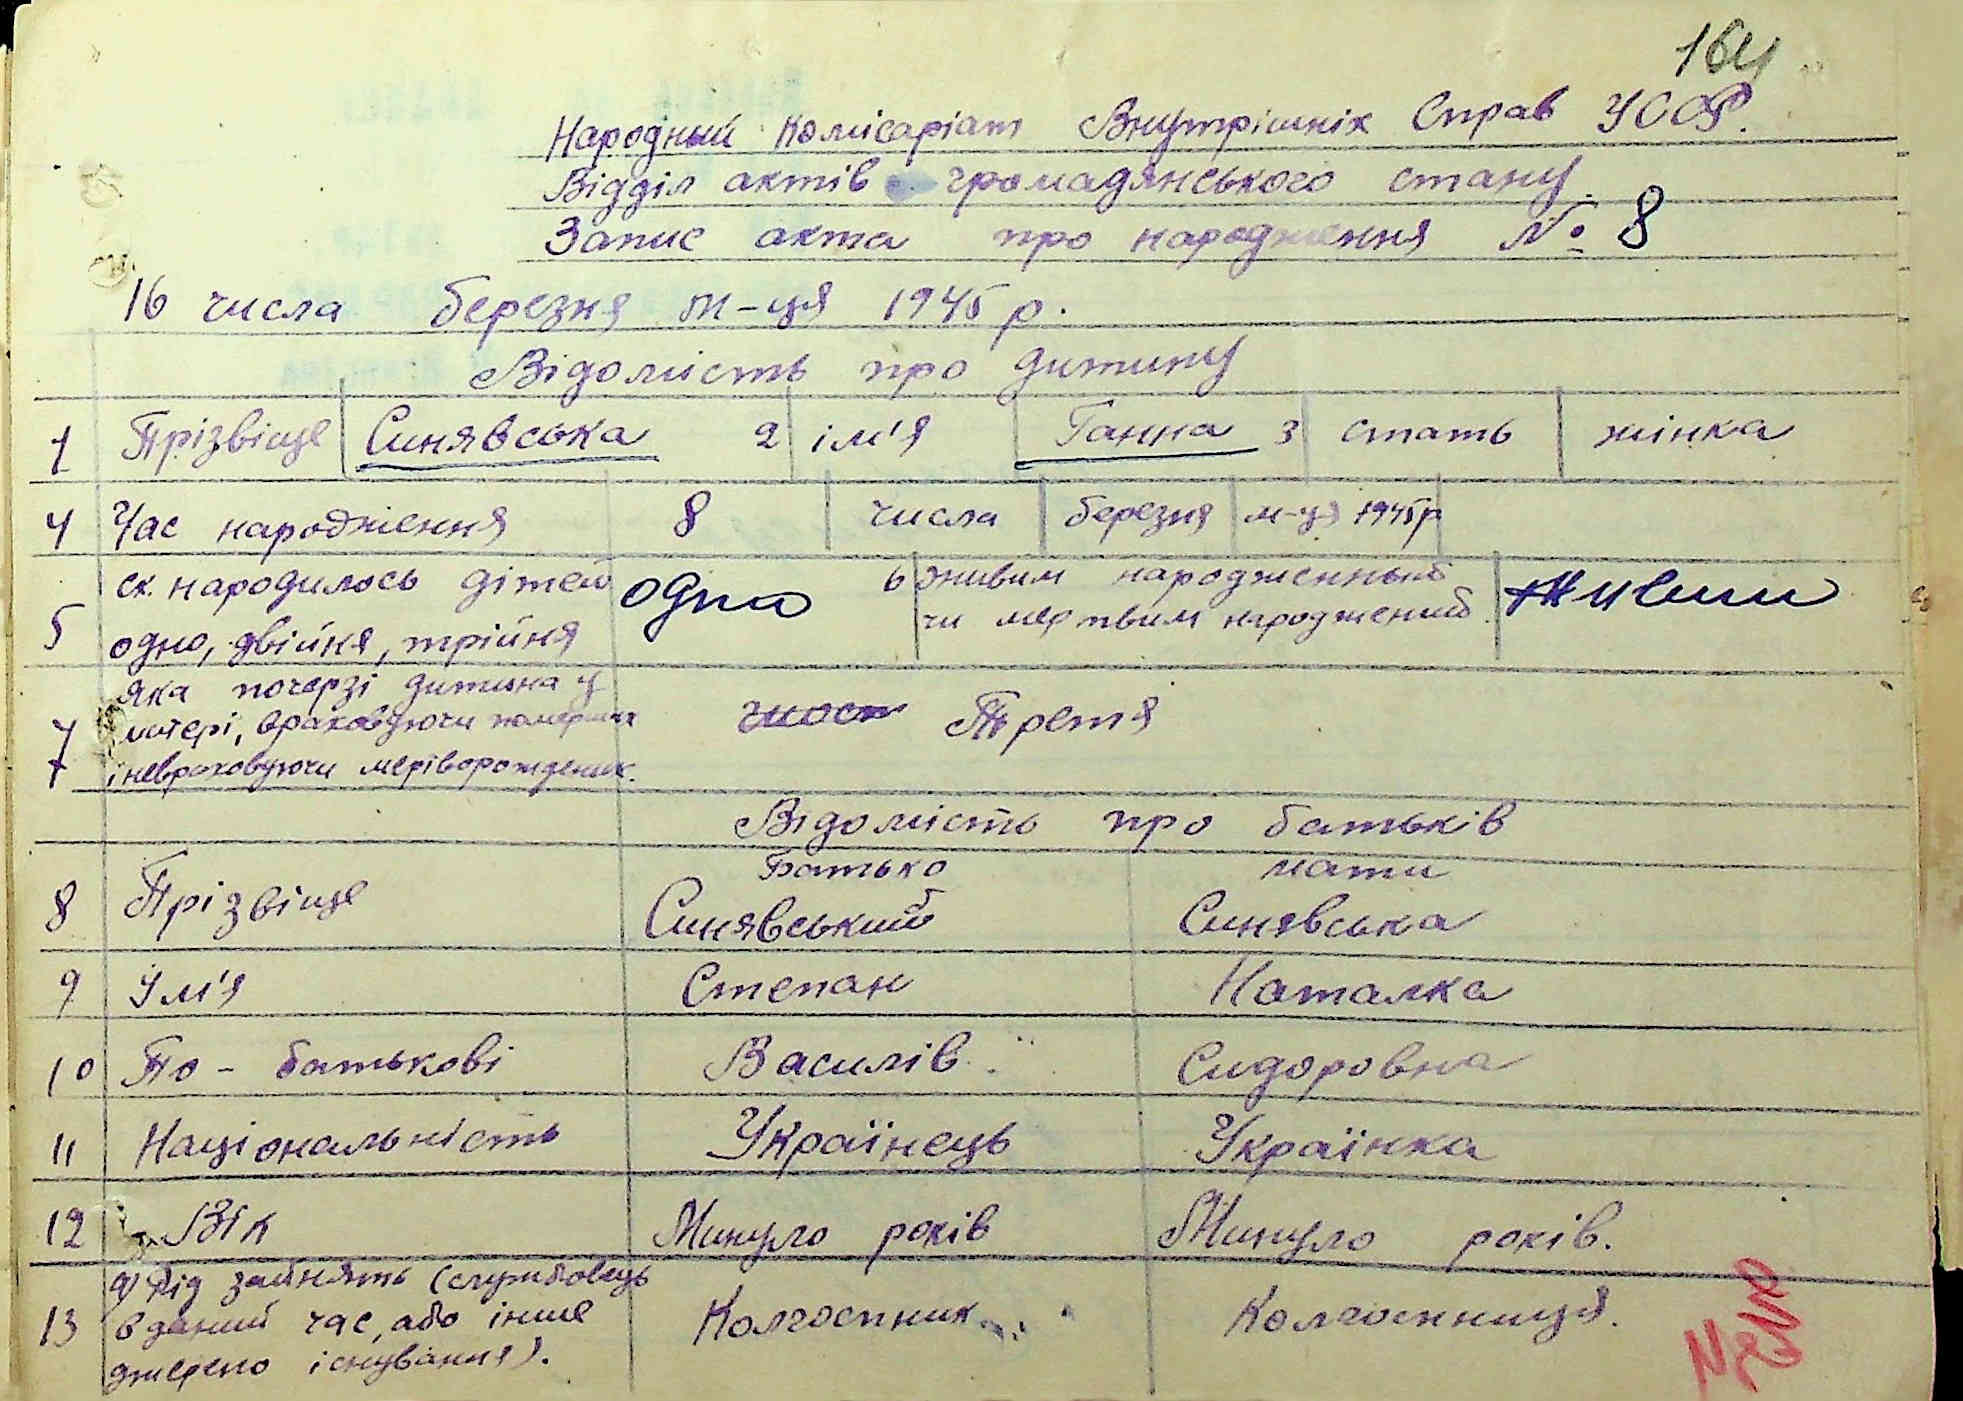 164
Народный Комісаріат Внутрішніх Справ УССР.
Відділ актів громадянського стану.
Запис акта про народження № 8
16 числа березня м-ця 1945 р.
Відомість про дитину
1 Прізвіще Синявська 2 ім'я Ганна 3 стать жінка
4 Час народження 8 числа березня м-ця 1945 р
5 ск. народилось дітей одно, двійня, трійня одно 6 живим народженный чи мертвим народжений. Живим
7 яка почерзі дитина у
матері, враховуючи померших Третя
і невраховуючи
Відомість про батьків
Батько мати
8 Прізвіще Синявський Синявська
9 Ім'я Степан Наталка
10 По-батькові Василів Сидоровна
11 Національність Українець Українка
12 Вік Минуло років Минуло років.
13 а) Рід зайнять (службовець
в даний час, або інше Колгоспник Колгоспниця.
джерело існування).